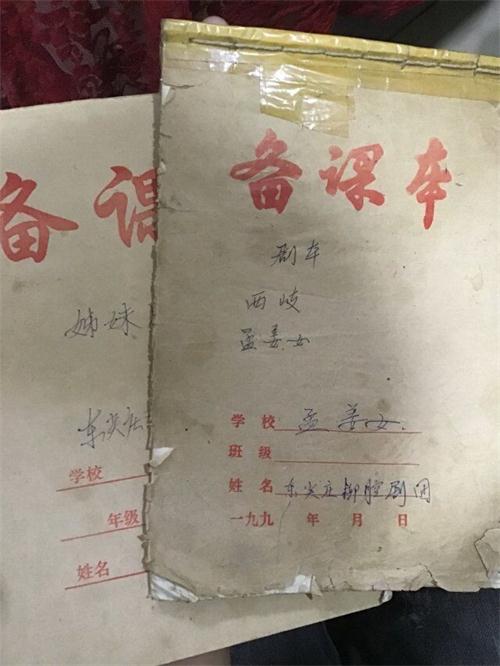 备课本
剧本
西岐
孟姜女
学校 孟姜女
班级
姓名 东尖庄柳腔剧团
一九九 年 月 日
备课
姊妹
东尖庄
学校
年级
姓名